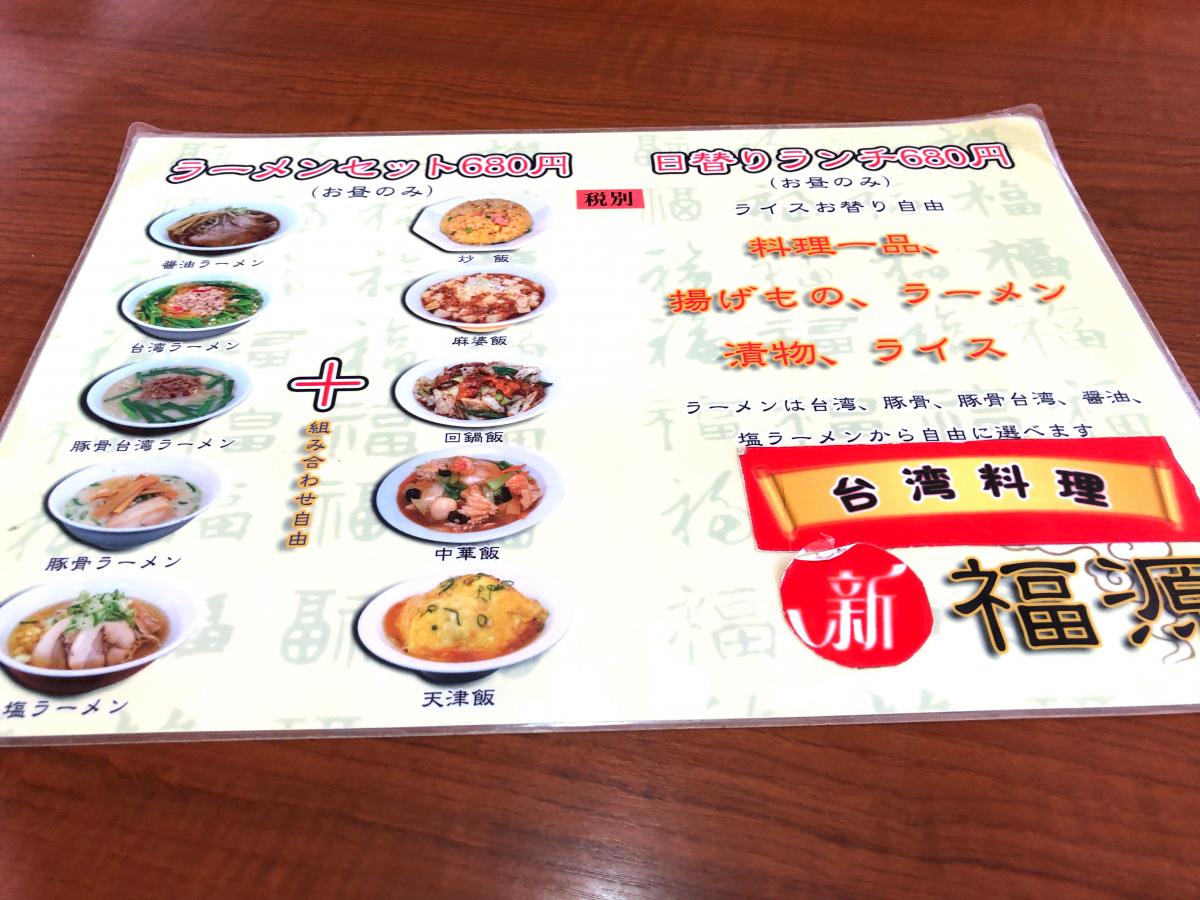 ラーメンセット680円
(お昼のみ)
醤油ラーメン
台湾ラーメン
豚骨台湾ラーメン
豚骨ラーメン
塩ラーメン
組み合わせ自由
炒 飯
麻婆飯
回鍋飯
中華飯
天津飯
税別
日替りランチ680円
(お昼のみ)
ライスお替り自由
料理一品、
揚げもの、ラーメン
漬物、ライス
ラーメンは台湾、豚骨、豚骨台湾、醤油、
塩ラーメンから自由に選べます
台湾料理
新
福源